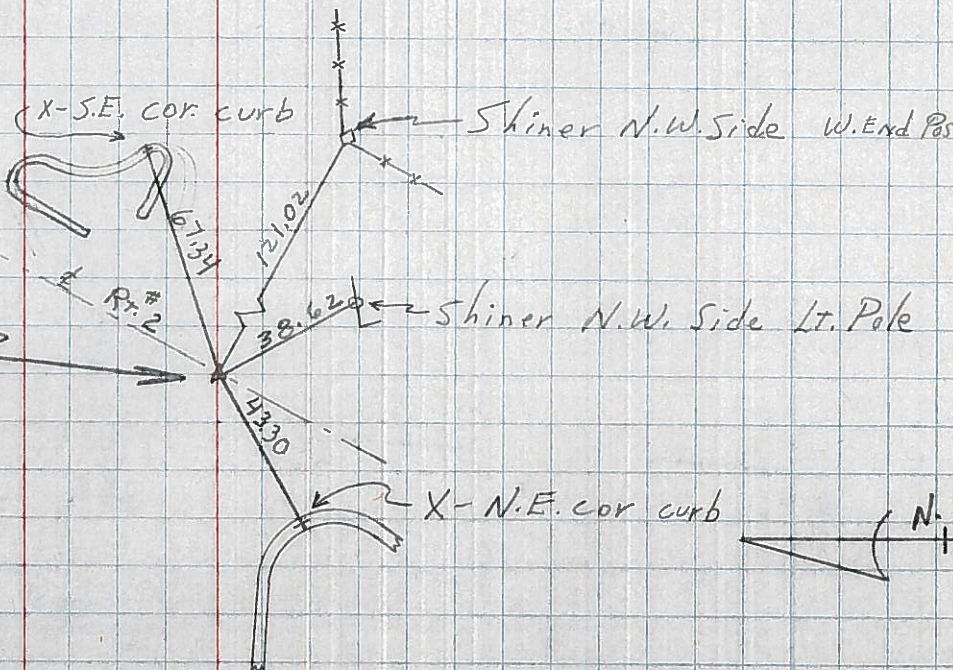 X-S.E. cor. curb
Shiner N.W. Side W. End Pos
121.02
67.34
℄ Rt. # 2
38.62
Shiner N.W. Side Lt. Pole
43.30
X-N.E. cor curb
N.